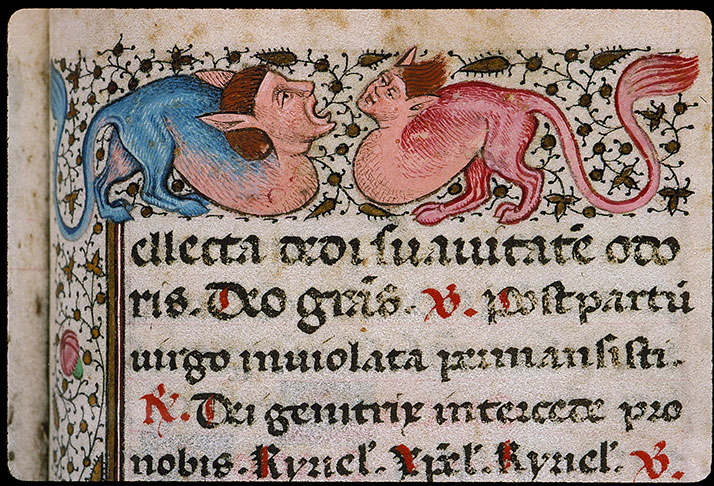 ellecta dedi suauitatē odo
ris. Deo gr̄as. ℣. post partū
uirgo inuiolata permansisti.
℟. Dei genitrix intercede pro
nobis. Kyriel̛. Xp̄el̛. Kyriel̛. ℣.